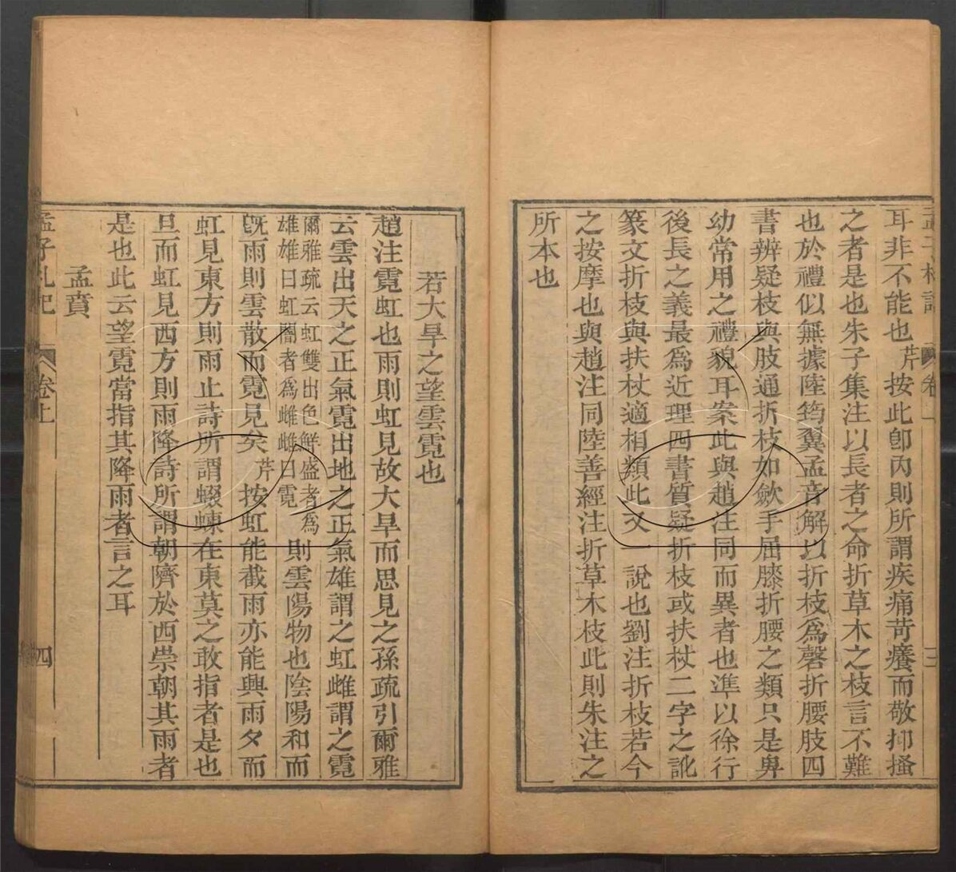 耳非不能也芹按此卽內則所謂疾痛苛癢而敬抑搔
之者是也朱子集注以長者之命折草木之枝言不難
也於禮似無據陸筠翼孟音解以折枝爲磬折腰肢四
書辨疑枝與肢通折枝如斂手屈膝折腰之類只是卑
幼常用之禮貌耳案此與趙注同而異者也準以徐行
後長之義最爲近理四書質疑折枝或扶杖二字之訛
篆文折枝與扶杖適相類此又一說也劉注折枝若今
之按摩也與趙注同陸善經注折草木枝此則朱注之
所本也
若大旱之望雲霓也
趙注霓虹也雨則虹見故大旱而思見之孫疏引爾雅
云雲出天之正氣霓出地之正氣雄謂之虹雌謂之霓
爾雅疏云虹雙出色鮮盛者爲
雄雄曰虹闇者爲雌雌曰霓
則雲陽物也陰陽和而
旣雨則雲散而霓見矣芹按虹能截雨亦能興雨夕而
虹見東方則雨止詩所謂蝃蝀在東莫之敢指者是也
旦而虹見西方則雨降詩所謂朝隮於西崇朝其雨者
是也此云望霓當指其降雨者言之耳
孟賁
孟子札記
卷上
四